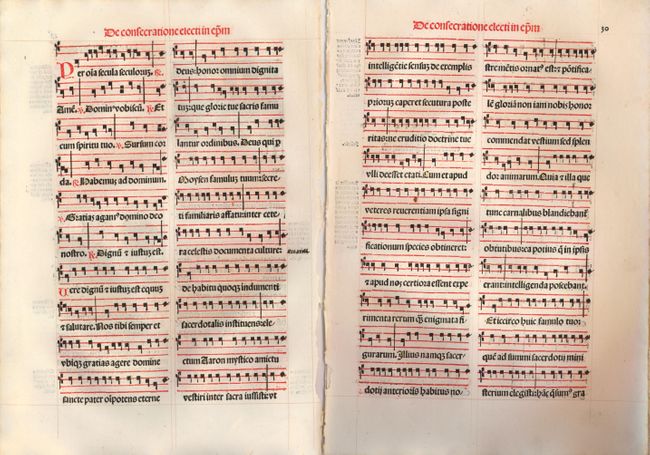 De consecratione electi in ep̄m
Per oīa secula seculoruꝫ. ℟.
Amē. ℣. Domin⁹ vobiscū. ℟. Et
cum spiritu tuo. ℣. Sursum cor
da. ℟. Habemus ad dominum.
℣. Gratias agam⁹ domino deo
nostro. ℟. Dignū ⁊ iustuꝫ est.
Uere dignū ⁊ iustuꝫ est equuꝫ
⁊ salutare. Nos tibi semper et
vbiqꝫ gratias agere domine
sancte pater oīpotens eterne
deus: honor omnium dignita
tuꝫ: que glorie tue sacris famu
lantur ordinibus. Deus qui
Moysen famuluꝫ tuuꝫ: secre
ti familiaris affatu: inter cete
ra celestis documenta culture:
de habitu quoqꝫ indumenti
sacerdotalis instituens: ele
ctum Aaron mystico amictu
vestiri inter sacra iussisti: vt
De consecratione electi in ep̄m
30
intelligētie sensuꝫ de exemplis
prioruꝫ caperet secutura poste
ritas: ne eruditio doctrine tue
vlli deesset etati. Cum et apud
veteres reuerentiam ipsa signi
ficationum species obtineret:
⁊ apud nos certiora essent expe
rimenta rerum qꝫ enigmata fi
gurarum. Illius namqꝫ sacer
dotij anterioris habitus no
stre mētis ornat⁹ est: ⁊ pōtifica
lē gloriā non iam nobis honor
commendat vestium sed splen
dor animarum. Quia ⁊ illa que
tunc carnalibus blandiebant
obtutibus: ea potius q̄ in ipsis
erant: intelligenda poscebant.
Et iccirco huic famulo tuo:
quē ad summi sacerdotij mini
sterium elegisti: hāc q̄sum⁹ gra